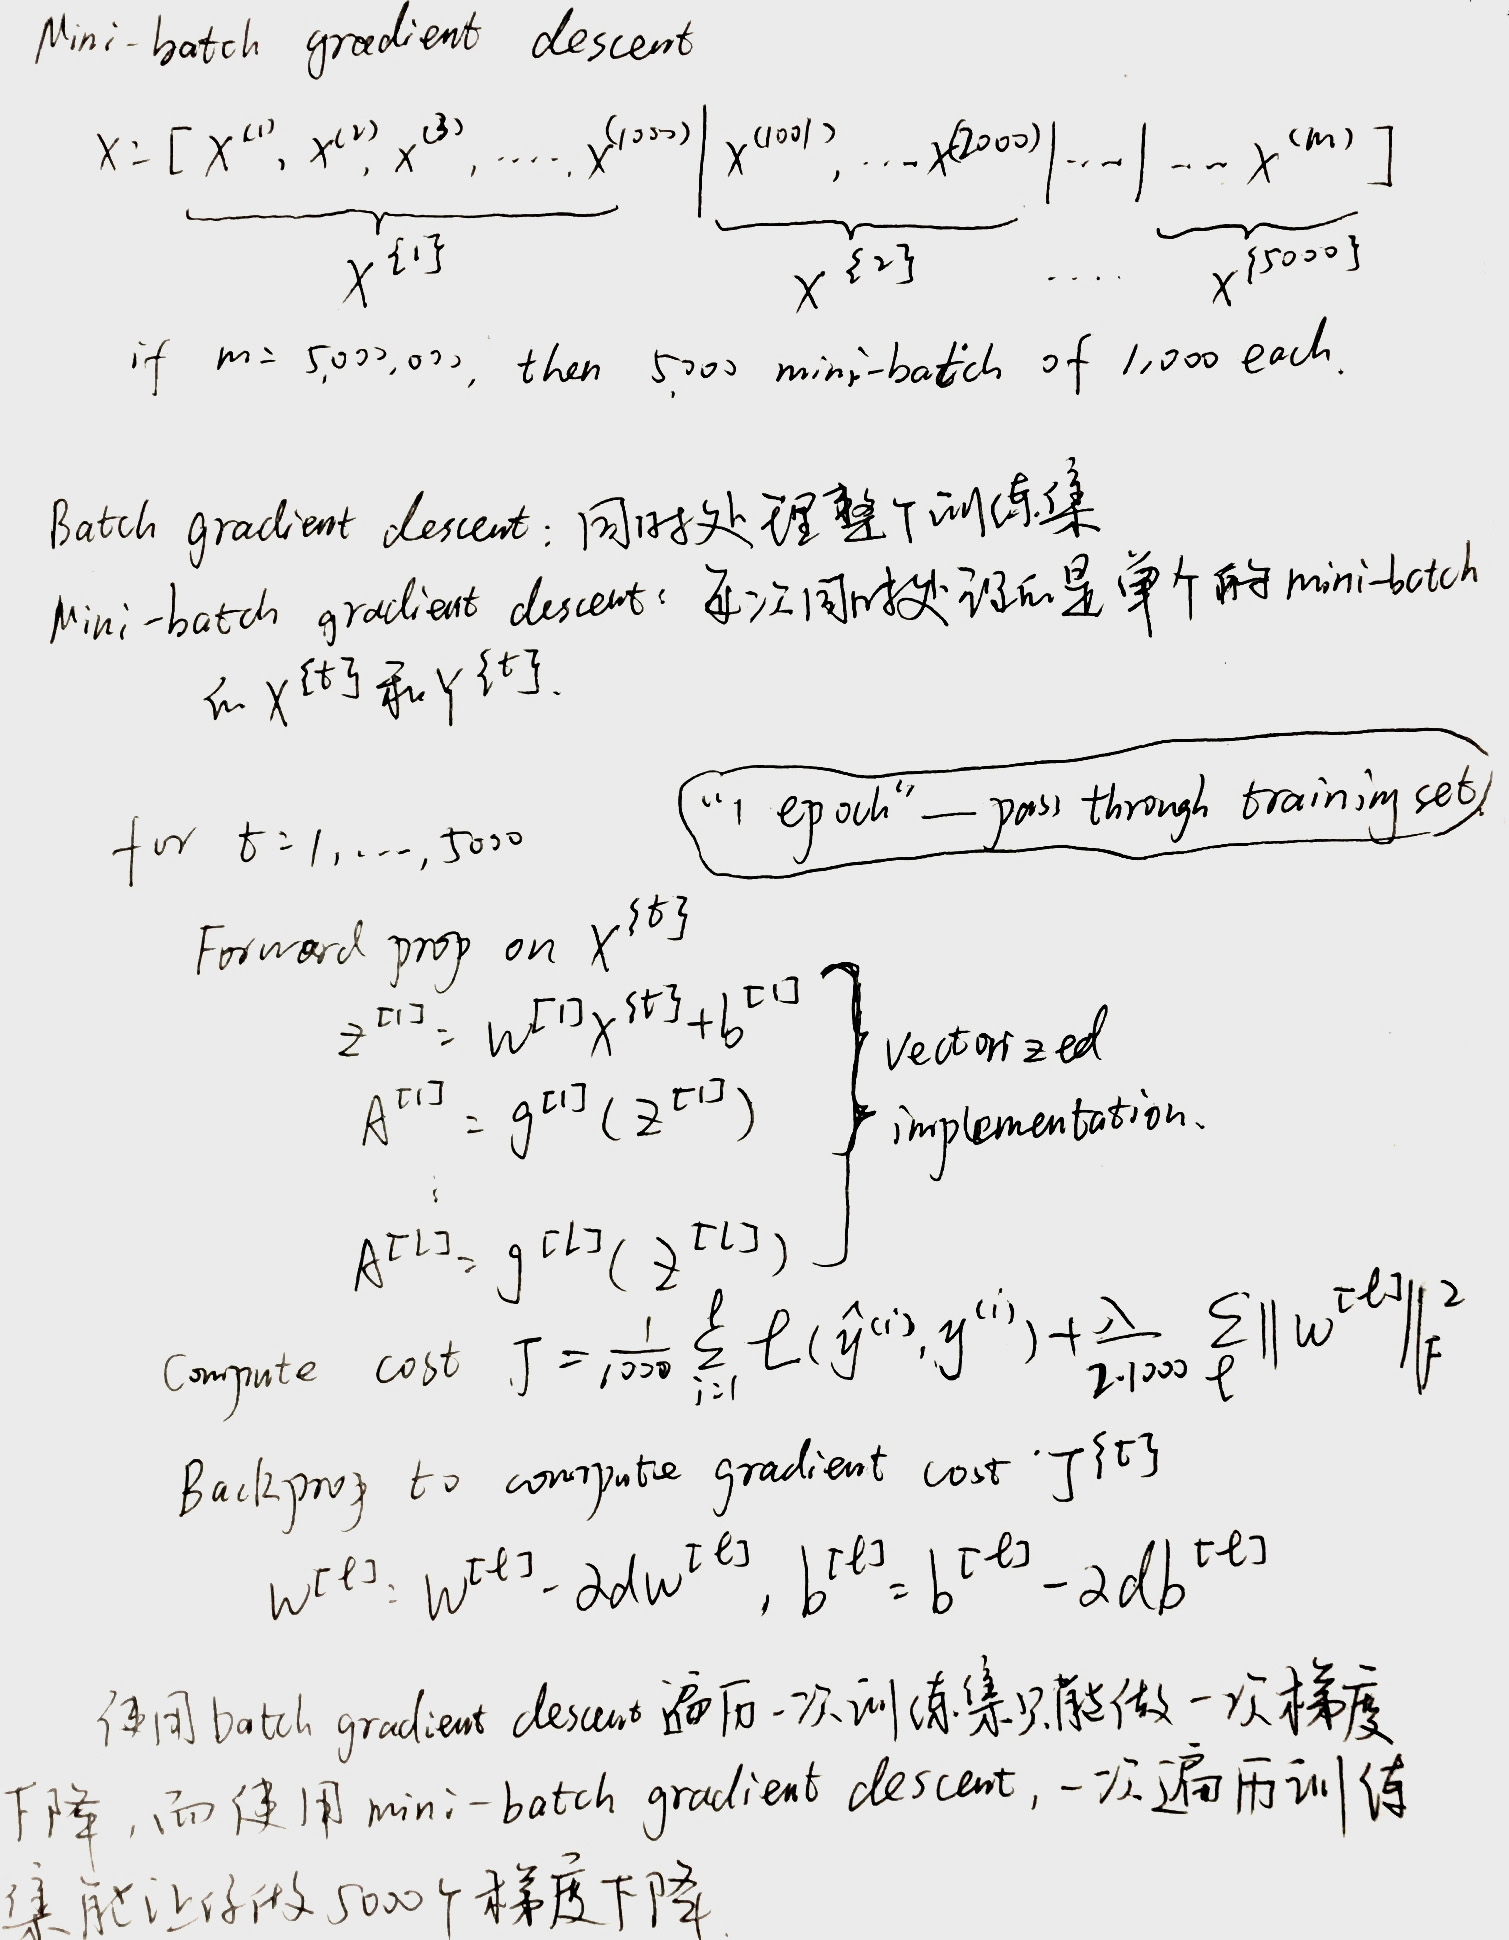 Mini-batch gradient descent
X = [ X^(1), X^(2), X^(3), ..... X^(1000) | X^(1001), ... X^(2000) | ... | ... X^(m) ]
X^{1} X^{2} .... X^{5000}
if m = 5,000,000, then 5,000 mini-batch of 1,000 each.
Batch gradient descent: 同时处理整个训练集
Mini-batch gradient descent: 每次同时处理的是单个的 mini-batch
的 X^{t} 和 Y^{t}.
"1 epoch" — pass through training set
for t = 1, ..., 5000
Forward prop on X^{t}
z^[1] = W^[1] X^{t} + b^[1]
A^[1] = g^[1] (z^[1])
⋮
A^[L] = g^[L] (z^[L])
Vectorized
implementation.
Compute cost J = 1/1000 Σ_{i=1}^{l} L(ŷ^(i), y^(i)) + λ/(2·1000) Σ_l ||W^[l]||_F^2
Backprop to compute gradient cost J^{t}
W^[l] = W^[l] - αdW^[l], b^[l] = b^[l] - αdb^[l]
使用 batch gradient descent 遍历一次训练集只能做一次梯度
下降,而使用 mini-batch gradient descent, 一次遍历训练
集能让你做 5000个梯度下降.